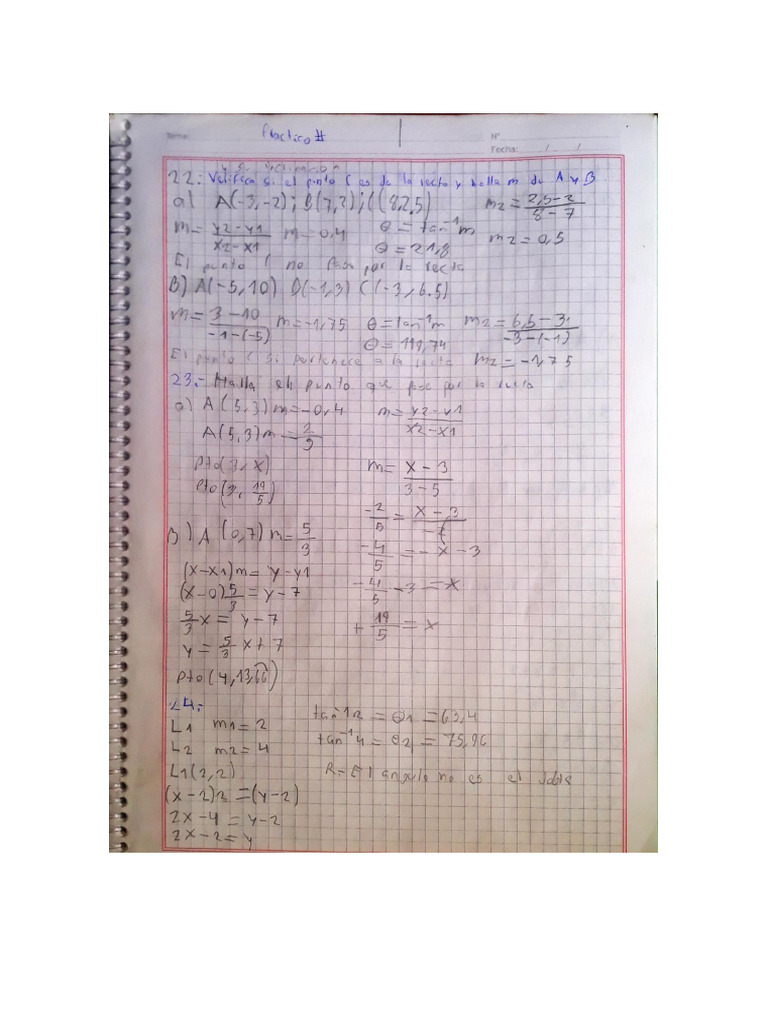 Practico #
Nº
Fecha: / /
y su inclinacion
22.- Verifica si el punto C es de la recta y halla m de A y B
a) A(-3,-2); B(7,2); C(8,2.5) m2 = 2,5-2 / 8-7
m = y2-y1 / x2-x1 m = 0,4 θ = tan⁻¹ m
θ = 21,8 m2 = 0,5
El punto C no pasa por la recta
B) A(-5,10) B(-1,3) C(-3,6.5)
m = 3-10 / -1-(-5) m = -1,75 θ = tan⁻¹ m m2 = 6,5-3 / -3-(-1)
θ = 119,74
El punto C si pertenece a la recta m2 = -1,75
23.- Halla el punto que pase por la recta
a) A(5,3) m = -0,4 m = y2-y1 / x2-x1
A(5,3) m = -2/5
Pto(3,x) m = x-3 / 3-5
Pto(3, 19/5)
-2/5 = x-3 /
B) A(0,7) m = 5/3
-4/5 = -x-3
(x-x1)m = y-y1
-4/5 - 3 = x
(x-0)5/3 = y-7
5/3x = y-7
+ 19/5 = x
y = 5/3 x + 7
Pto(4,13,66)
24.-
tan⁻¹ 2 = θ1 = 63,4
L1 m1 = 2
tan⁻¹ 4 = θ2 = 75,96
L2 m2 = 4
L1(2,2) R = El angulo no es el doble
(x-2)2 = (y-2)
2x-4 = y-2
2x-2 = y